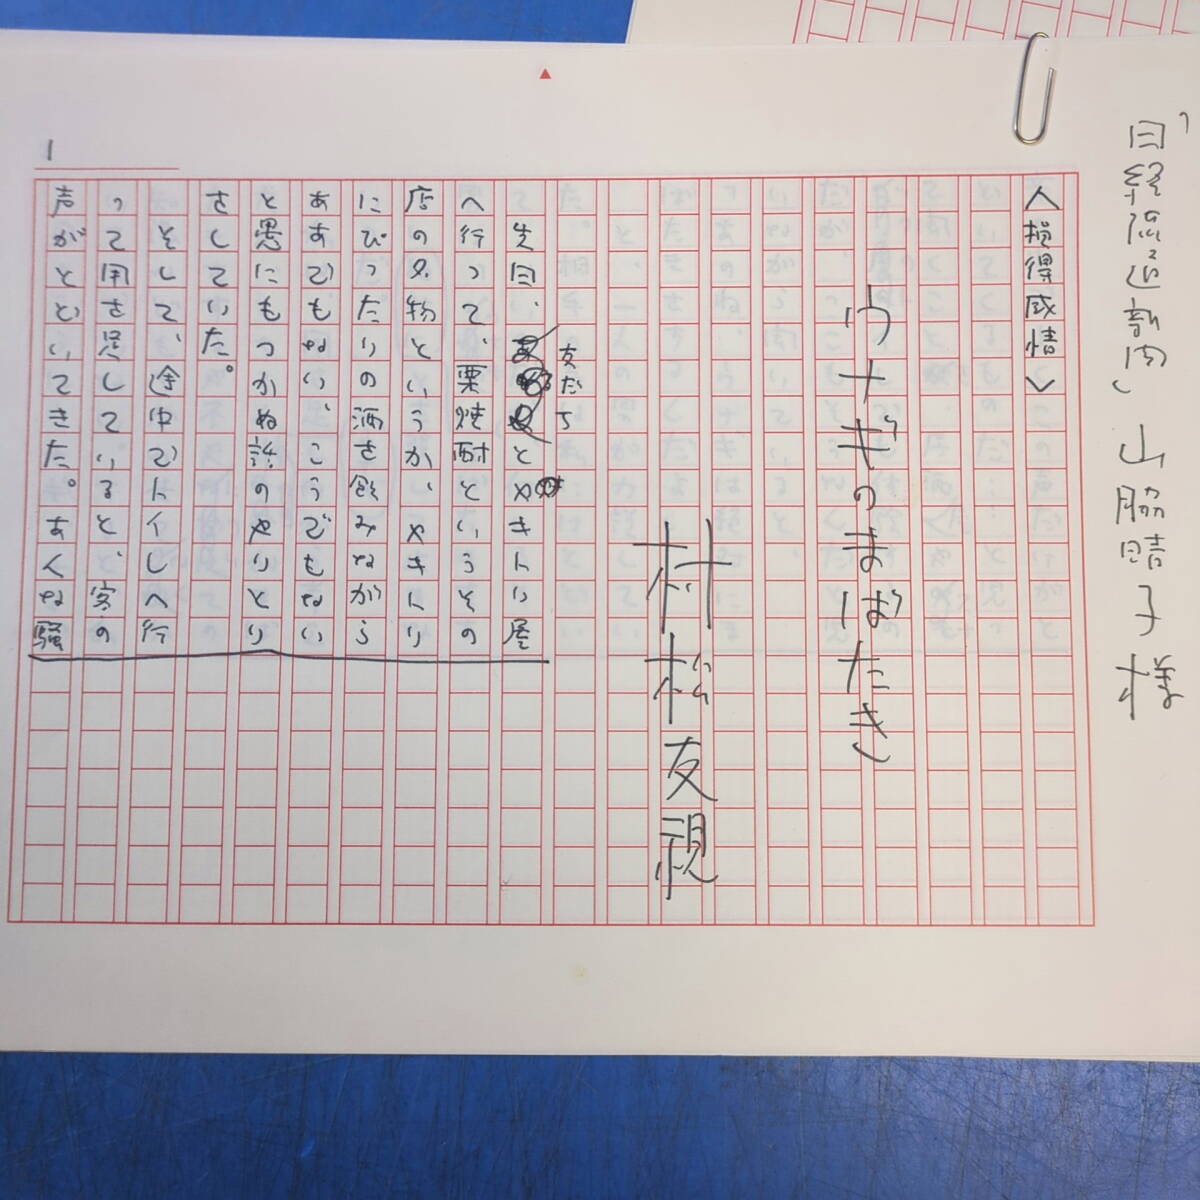 「日経流通新聞」 山脇晴子様
〈損得感情〉
ウナギのまばたき
村松友視
先日、友だちとやきとり屋
へ行って、栗焼酎というその
店の名物というか、やきとり
にぴったりの酒を飲みながら
ああでもない、こうでもない
と愚にもつかぬ話のやりとり
をしていた。
そして、途中でトイレへ行
って用を足していると、客の
声がとどいてきた。あくな騒
1